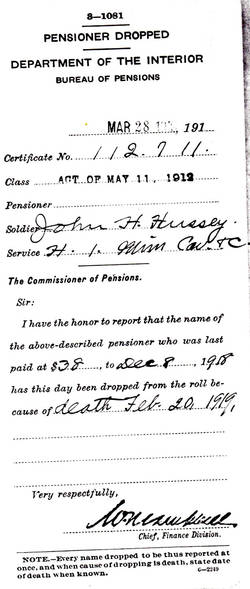 3—1081
PENSIONER DROPPED
DEPARTMENT OF THE INTERIOR
BUREAU OF PENSIONS
MAR 28 191
Certificate No. 112.711.
Class ACT OF MAY 11, 1912
Pensioner
Soldier John H. Hussey
Service H. 1. Minn Cav
The Commissioner of Pensions.
Sir:
I have the honor to report that the name of
the above-described pensioner who was last
paid at $38, to Dec 8, 1918
has this day been dropped from the roll be-
cause of death Feb. 20, 1919,
Very respectfully,
Chief, Finance Division.
NOTE.—Every name dropped to be thus reported at
once, and when cause of dropping is death, state date
of death when known.
6—2249